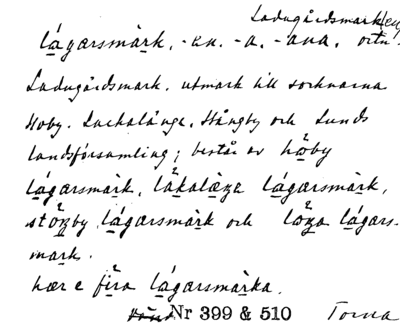 Ladugårdsmark(en
lágarsmàrk, -en. -a. -ana. ortn.
Ladugårdsmark. utmark till socknarna
Hoby. Lackalänge. Stångby och Lunds
landsförsamling; består av hǒby
lágarsmàrk, låkalæŋe lágarsmàrk,
stöŋby lágarsmàrk och lǒŋa lágars-
mark.
hær e fira lágarsmàrka.
Nr 399 & 510 Torna